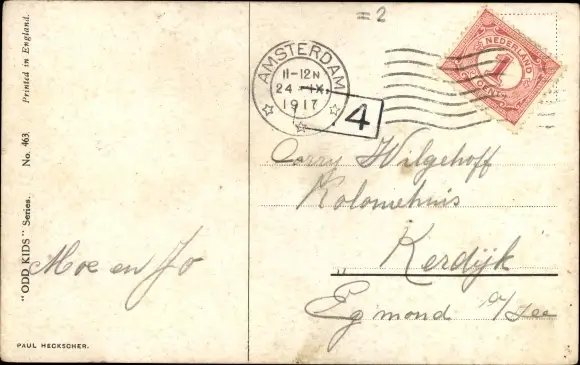 = 2
AMSTERDAM
11-12N
24 -IX.
1917
4
NEDERLAND
1
CENT
Corry Wilgehoff
Koloniehuis
Kerdijk
Egmond a/Zee
Moe en Jo
"ODD KIDS" Series. No. 463. Printed in England.
PAUL HECKSCHER.